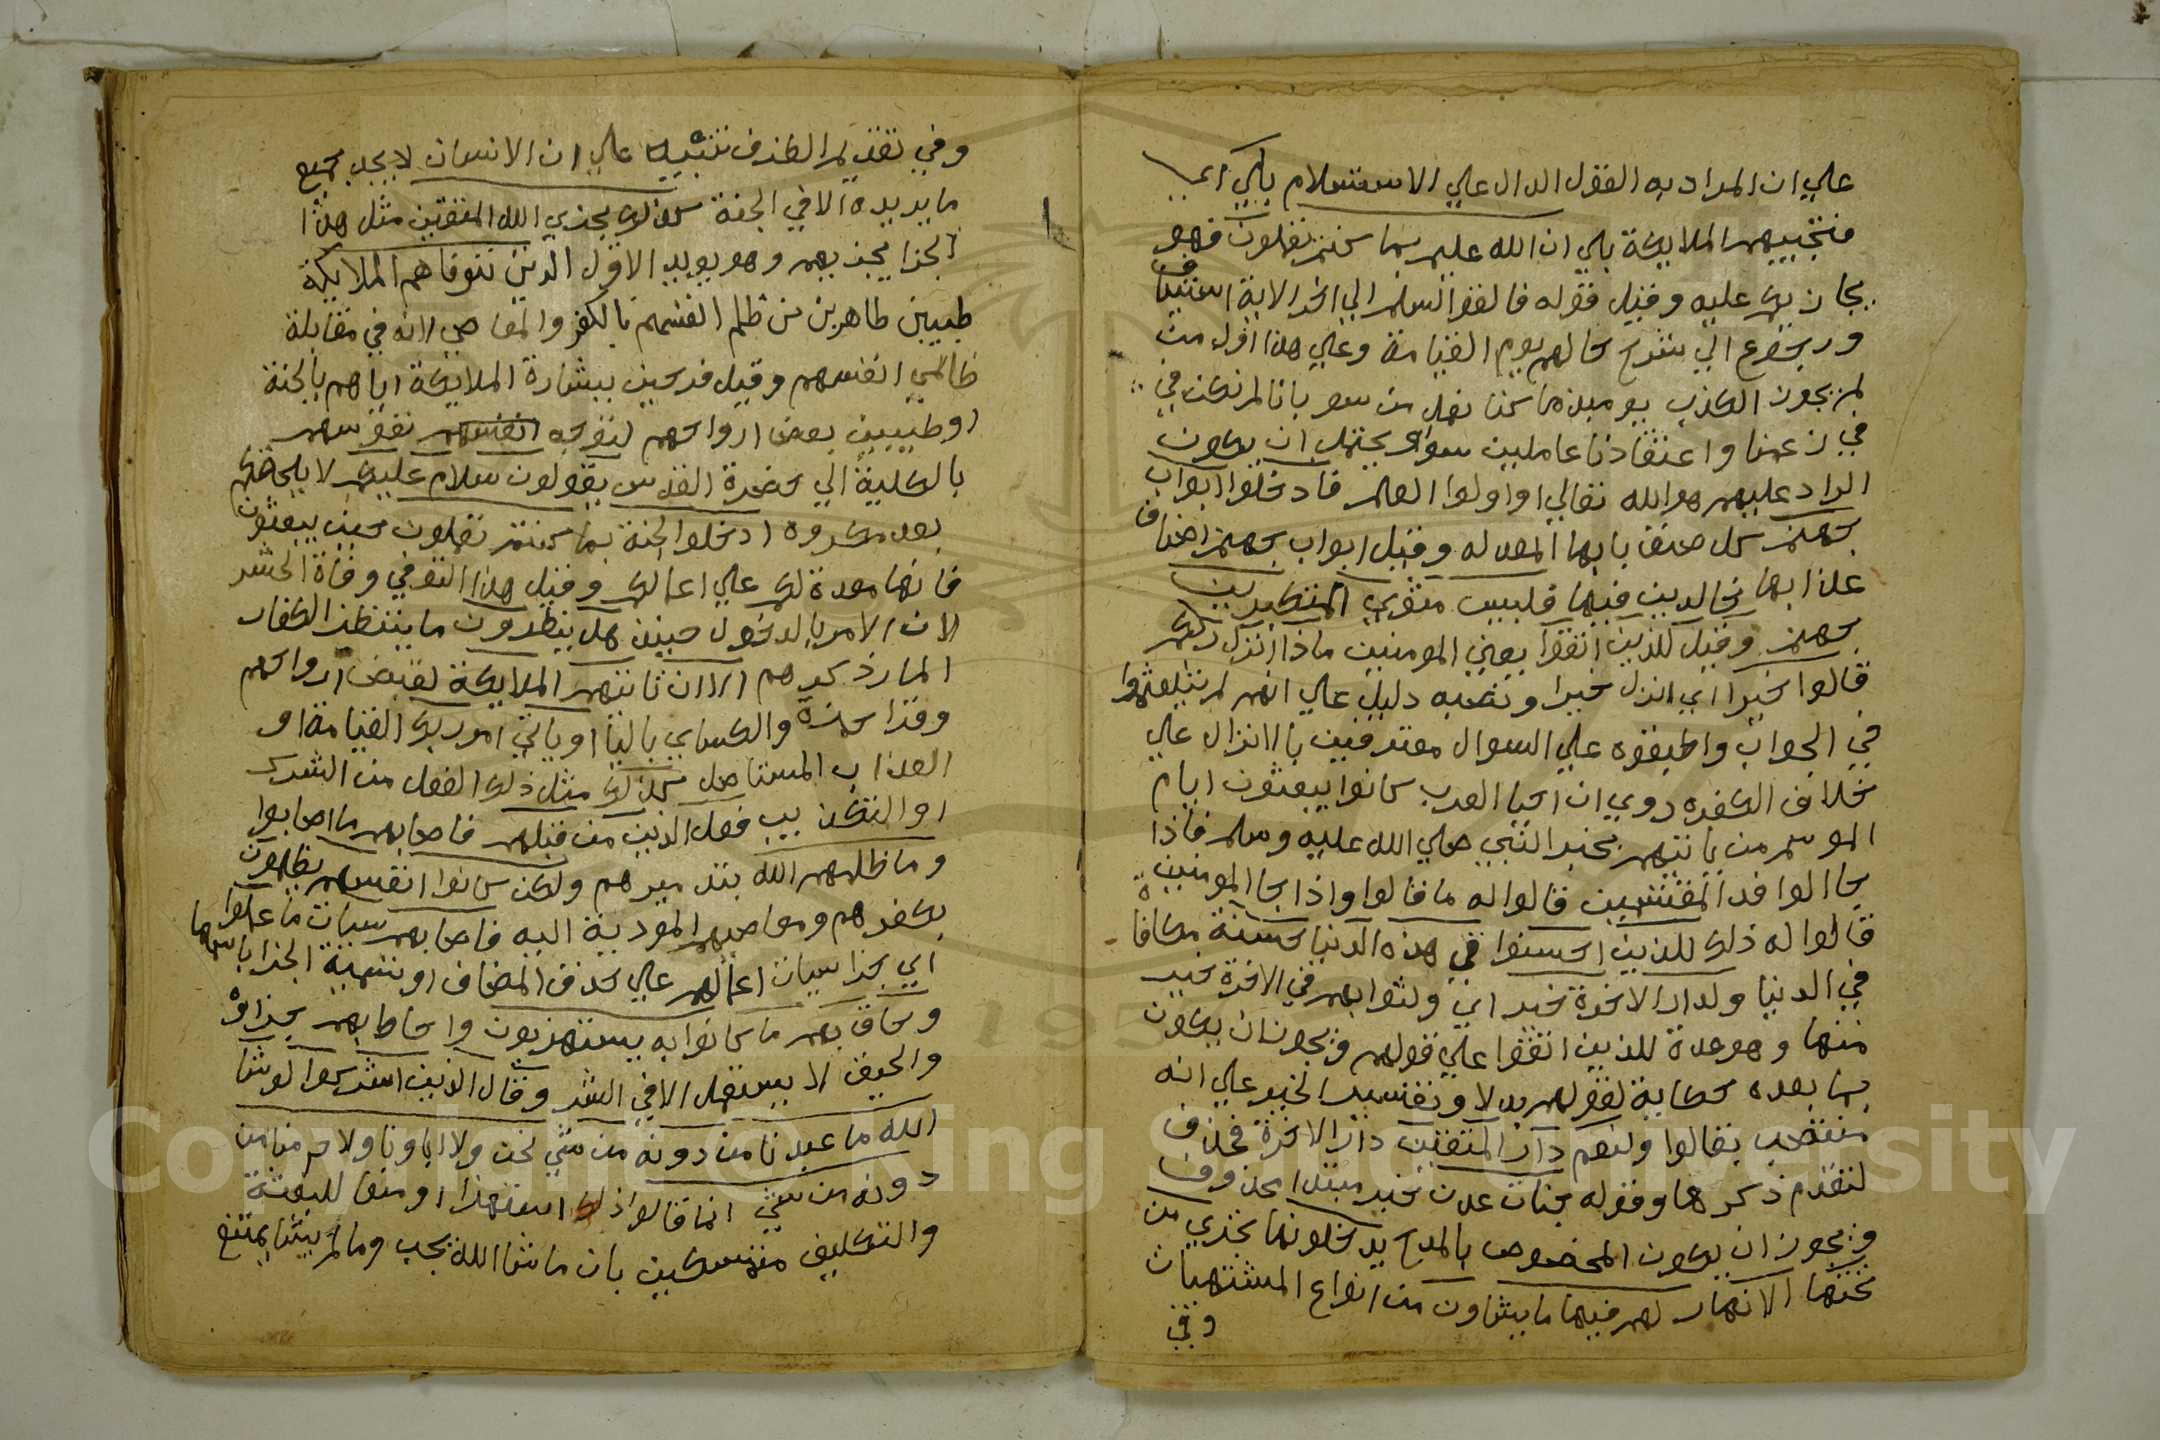 علي ان المراد به القول الدال علي الاستسلام بلي اي
فتجيبهم الملايكة بلي ان الله عليم بما كنتم تعملون فهو
يجازيكم عليه وقيل قوله فالقوا السلم الي اخر الاية استيناف
ورجوع الي شرح حالهم يوم القيامة وعلي هذا اول من
لم يجوز الكذب يوميذ ما كنا نعمل من سو بانا لم نكن في
في زعمنا واعتقادنا عاملين سوا ويحتمل ان يكون
الراد عليهم هو الله تعالي او اولوا العلم فادخلوا ابواب
جهنم كل صنف بابها المعد له وقيل ابواب جهنم اصناف
عذابها خالدين فيها فلبيس مثوي المتكبرين
جهنم وقيل للذين اتقوا يعني المومنين ماذا انزل ربكم
قالوا خيرا اي انزل خيرا ونصبه دليل علي انهم لم يتلعثموا
في الجواب واطبقوه علي السوال معترفين بالانزال علي
خلاف الكفره روي ان احيا العرب كانوا يبعثون ايام
الموسم من ياتيهم بخبر النبي صلي الله عليه وسلم فاذا
جا الوافد المقتسمين قالوا له ما قالوا واذا جا المومنين
قالوا له ذلك للذين احسنوا في هذه الدنيا حسنة مكافاة
في الدنيا ولدار الاخرة خير اي ولثوابهم في الاخرة خير
منها وهو عدة للذين اتقوا علي قولهم ويجوز ان يكون
بما بعده حكاية لقولهم بدلا وتفسير الخير علي انه
منتصب بقالوا ولنعم دار المتقين دار الاخرة فحذف
لتقدم ذكرها وقوله جنات عدن خبر مبتدا محذوف
ويجوز ان يكون المخصوص بالمدح يدخلونها تجري من
تحتها الانهار لهم فيها ما يشاون من انواع المشتهيات
وفي
وفي تقديم الظرف تنبيه علي ان الانسان لا يجد جميع
ما يريده الا في الجنة كذلك يجزي الله المتقين مثل هذا
الجزا يجزيهم وهو يويد الاول الذين تتوفاهم الملايكة
طيبين طاهرين من ظلم انفسهم بالكفر والمعاصي لانه في مقابلة
ظالمي انفسهم وقيل فرحين ببشارة الملايكة اياهم بالجنة
او طيبين بقبض ارواحهم لتوجه انفسهم نفوسهم
بالكلية الي حضرة القدس يقولون سلام عليكم لا يلحقكم
بعد مكروه ادخلوا الجنة بما كنتم تعملون حين يبعثون
فانها معدة لكم علي اعمالكم وقيل هذا التوفي وفاة الحشر
لان الامر بالدخول حينيذ هل ينظرون ما ينتظر الكفار
المار ذكرهم الا ان تاتيهم الملايكة لقبض ارواحهم
وقرا حمزة والكساي باليا او ياتي امر ربك القيامة او
العذاب المستاصل كذلك مثل ذلك الفعل من الشرك
او التكذيب فعل الذين من قبلهم فاصابهم ما اصابوا
وما ظلمهم الله بتدميرهم ولكن كانوا انفسهم يظلمون
بكفرهم ومعاصيهم المودية اليه فاصابهم سيات ما عملوا
اي جزا سيات اعمالهم علي حذف المضاف او تسمية الجزا باسمها
وحاق بهم ما كانوا به يستهزيون واحاط بهم جزاوه
والحيق لا يستعمل الا في الشر وقال الذين اشركوا لو شا
الله ما عبدنا من دونه من شي نحن ولا اباونا ولا حرمنا من
دونه من شي انما قالوا ذلك استهزا او منعا للبعثة
والتكليف متمسكين بان ما شا الله يجب وما لم يشا يمتنع